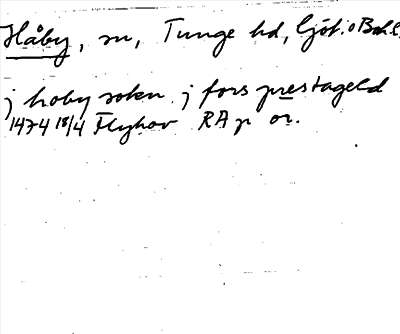 Håby, sn, Tunge hd, Göt. o Boh. l.
j hoby sokn j fors prestageld
1474 18/4 Flyhov RA p or.